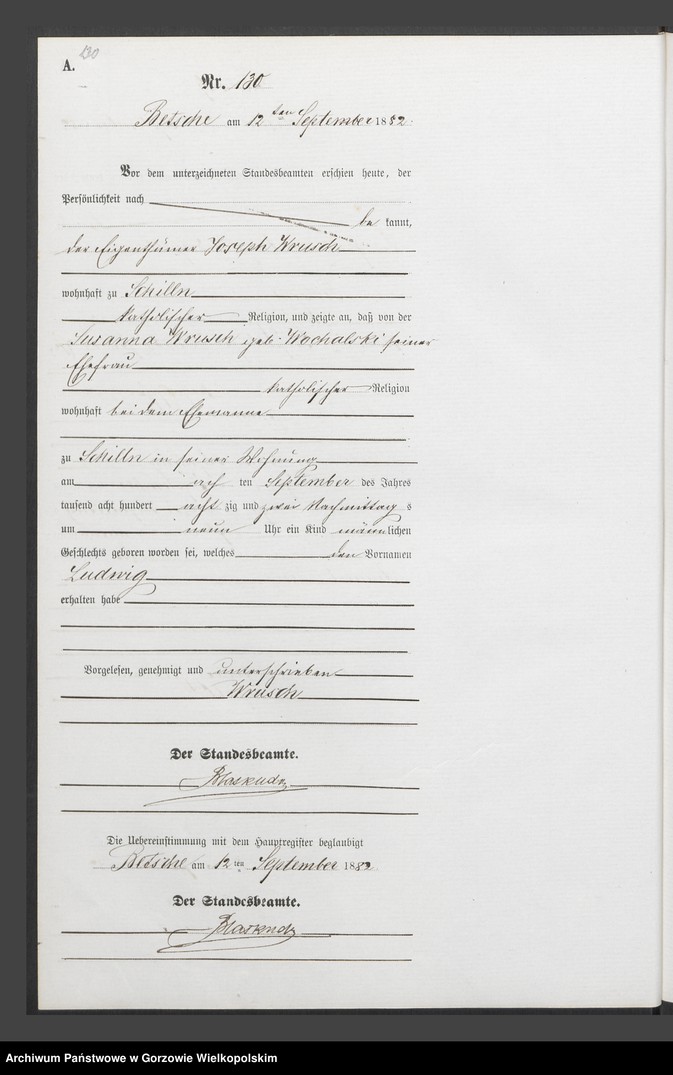 130
A.
Nr. 130
Betsche am 12 ten September 1882.
Vor dem unterzeichneten Standesbeamten erschien heute, der
Persönlichkeit nach
be kannt,
der Eigenthümer Joseph Wrusch
wohnhaft zu Schilln
katholischer Religion, und zeigte an, daß von der
Susanna Wrusch geb. Wochalski seiner
Ehefrau
katholischer Religion
wohnhaft bei dem Ehemanne
zu Schilln in seiner Wohnung
am ach ten September des Jahres
tausend acht hundert acht zig und zwei Nachmittag s
um neun Uhr ein Kind männlichen
Geschlechts geboren worden sei, welches den Vornamen
Ludwig
erhalten habe
Vorgelesen, genehmigt und unterschrieben
Wrusch
Der Standesbeamte.
Die Uebereinstimmung mit dem Hauptregister beglaubigt
Betsche am 12 ten September 1882
Der Standesbeamte.
Archiwum Państwowe w Gorzowie Wielkopolskim